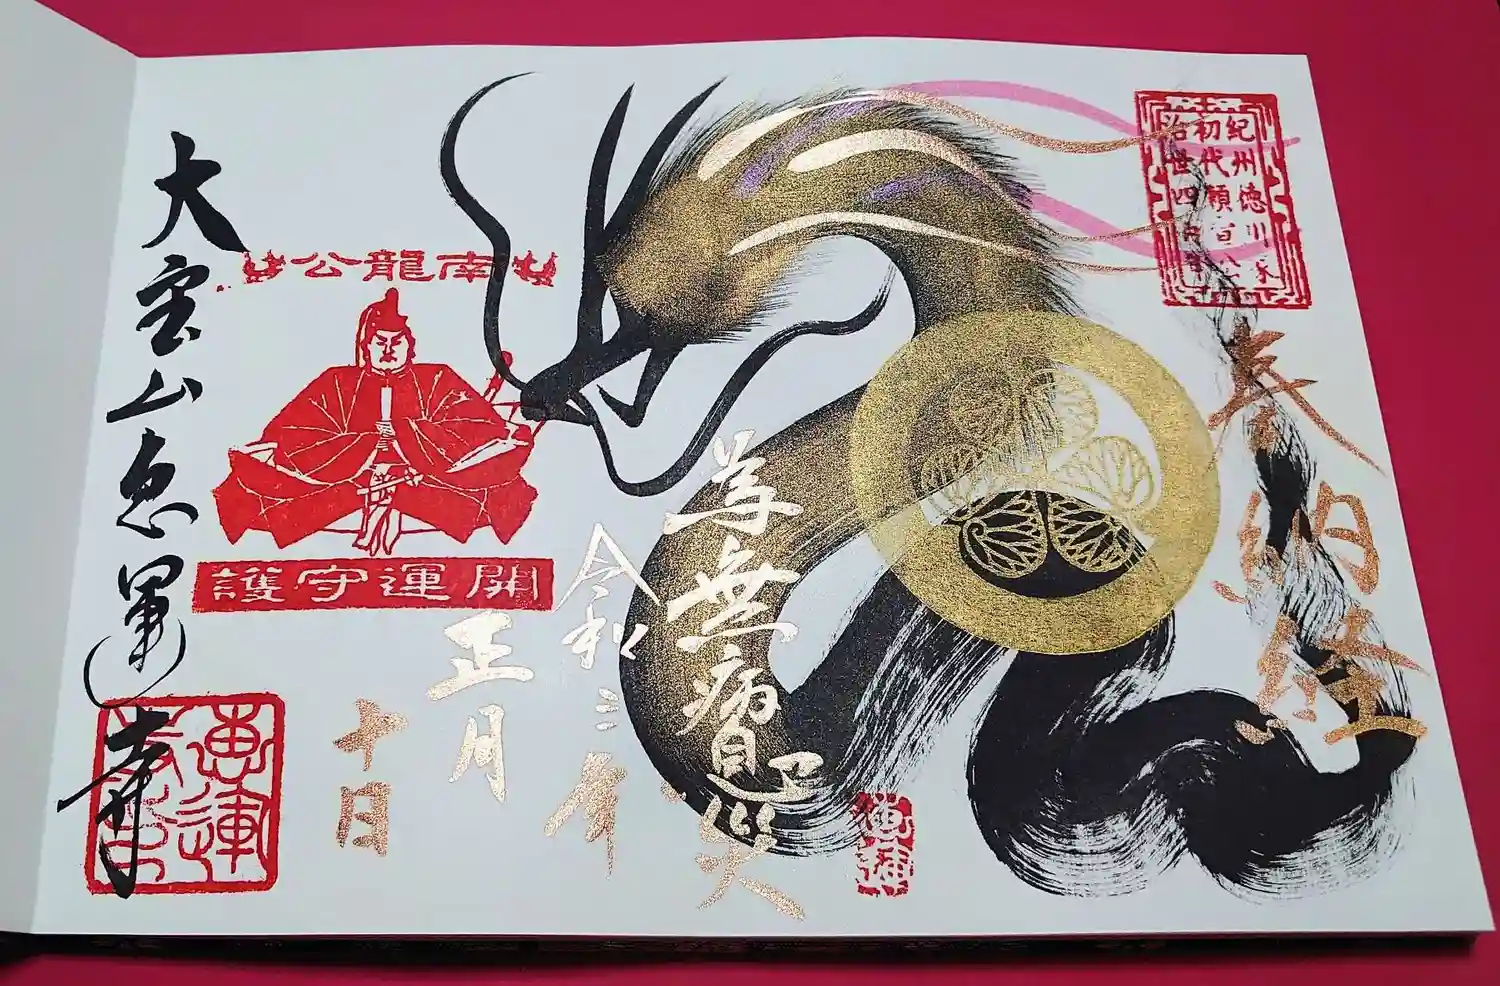 紀州徳川家
初代頼宣公
治世四百年
奉納経
為無病息災
令和三年
正月
十日
南龍公
開運守護
大宝山恵運寺
恵運